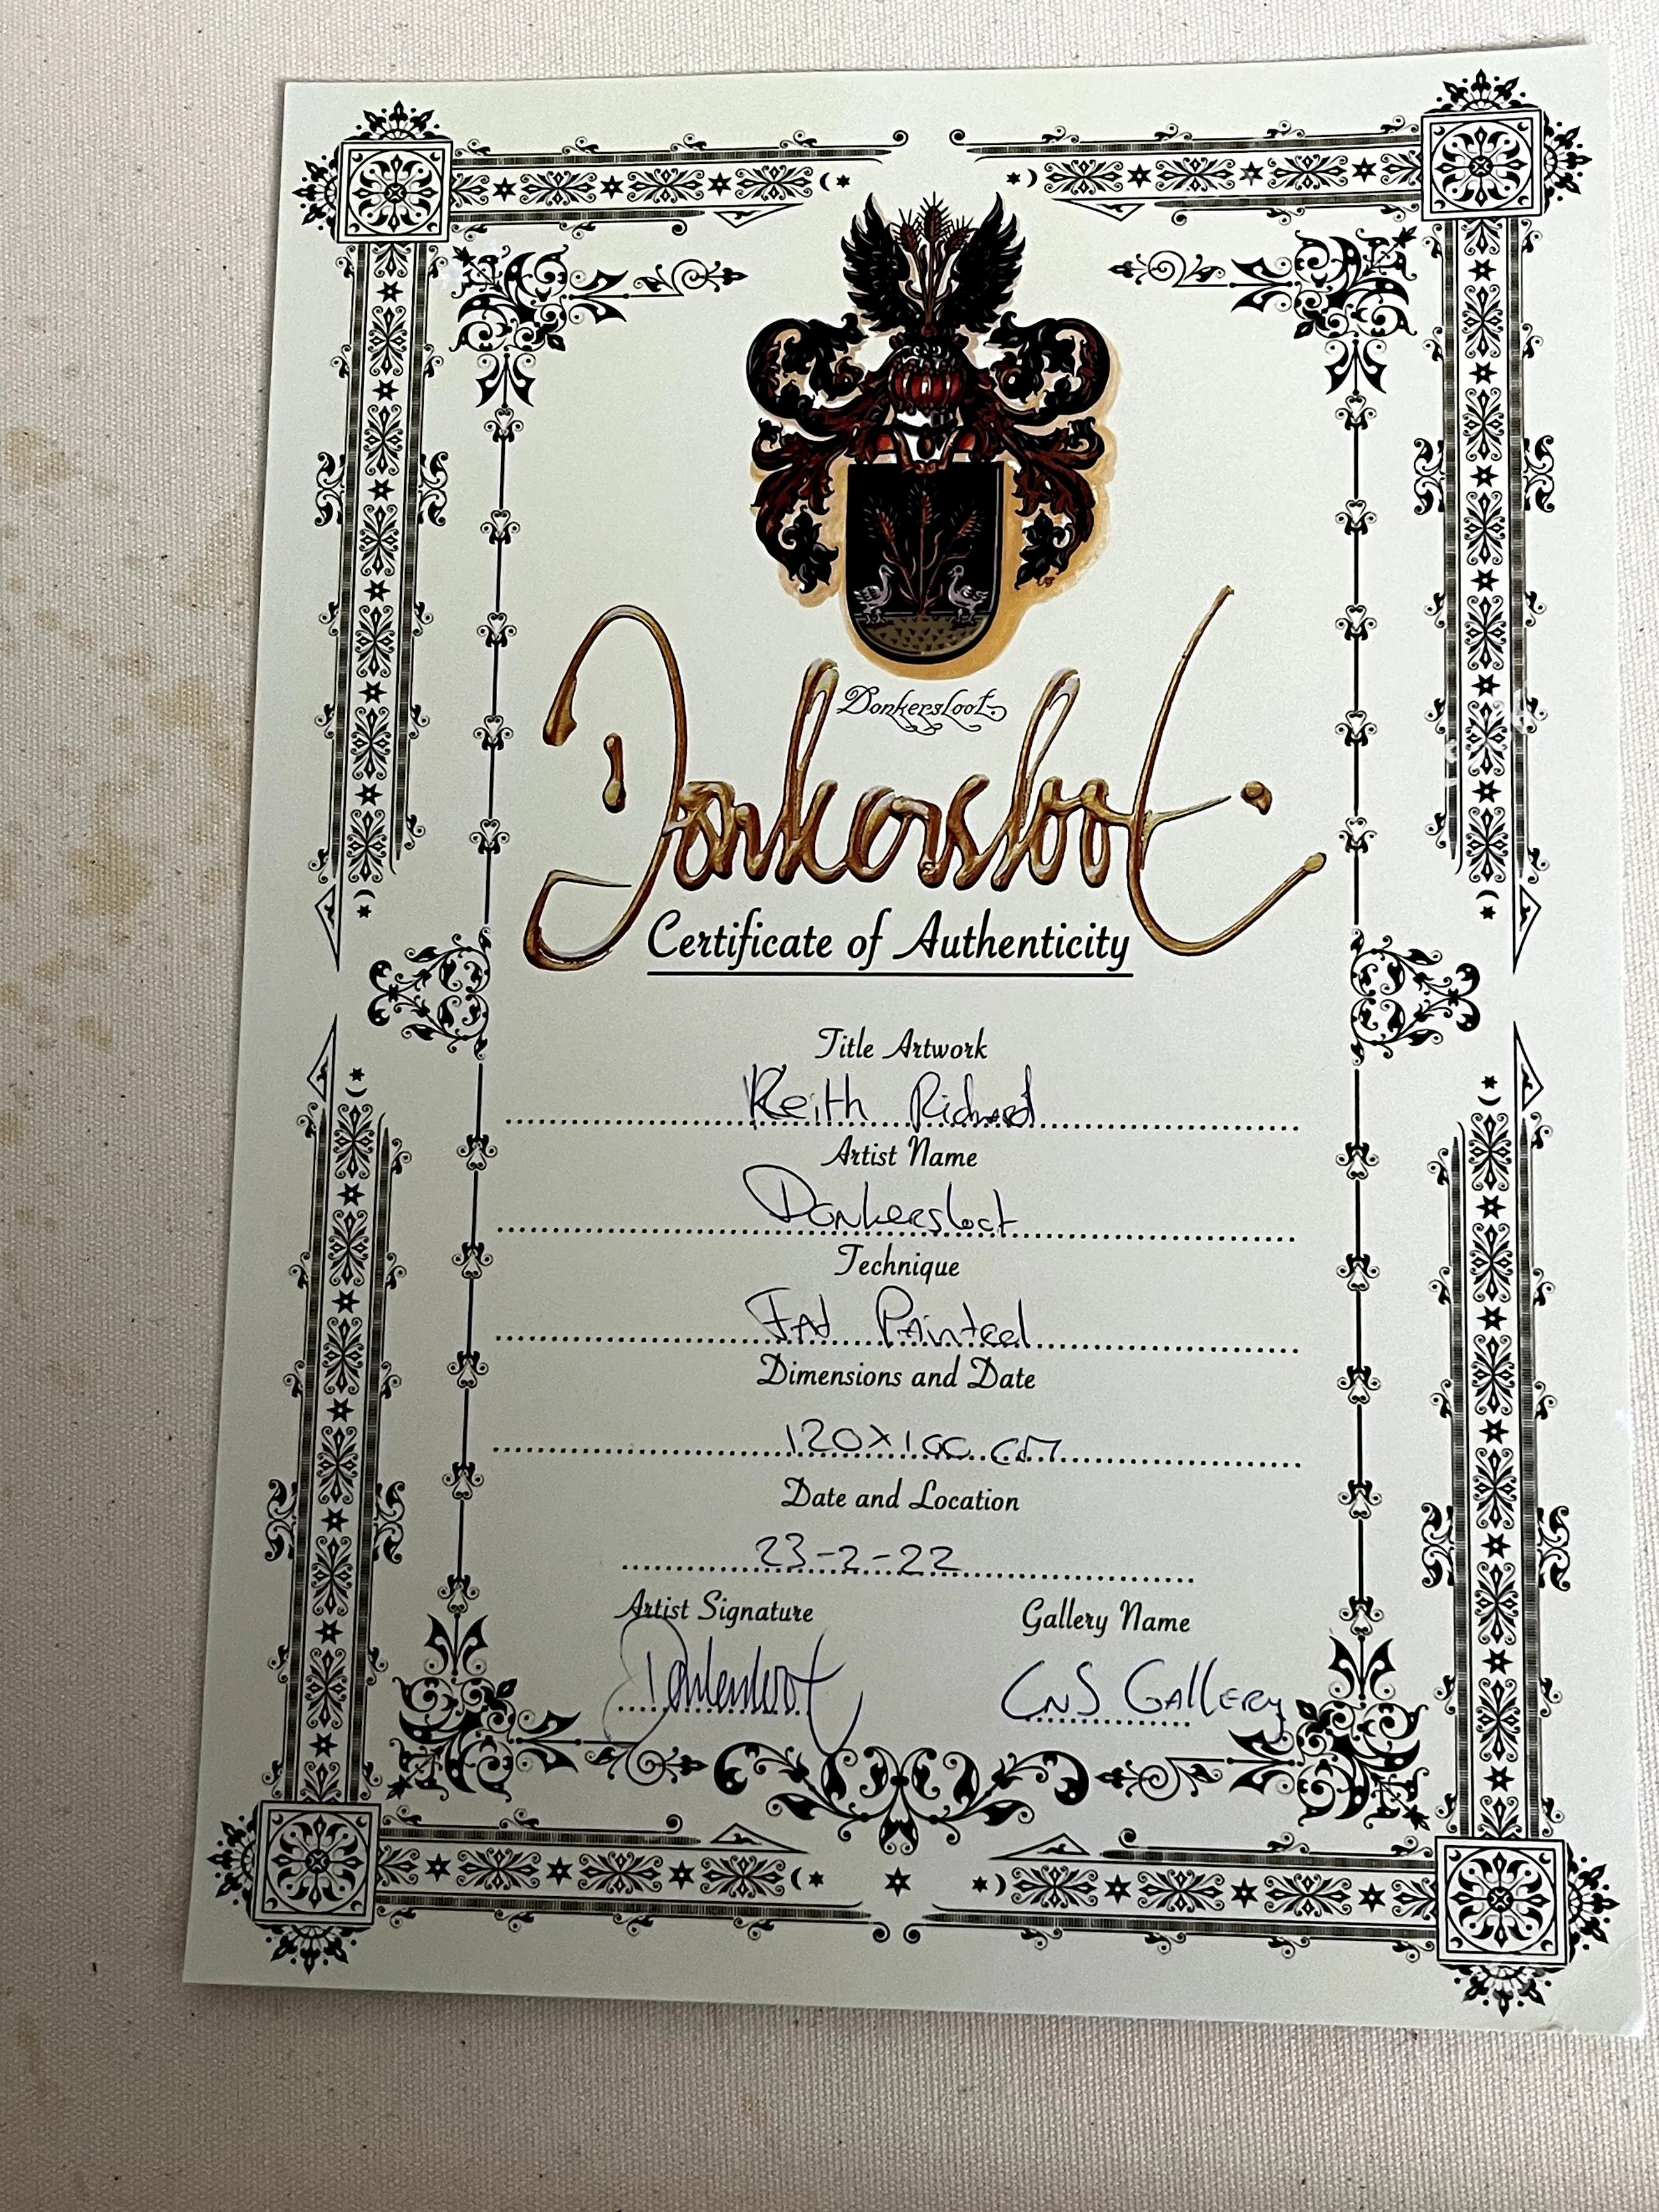 Donkersloot
Donkersloot
Certificate of Authenticity
Title Artwork
Keith Richard
Artist Name
Donkersloot
Technique
Fat Painted
Dimensions and Date
120x100 cm
Date and Location
23-2-22
Artist Signature Gallery Name
Donkersloot CNS Gallery